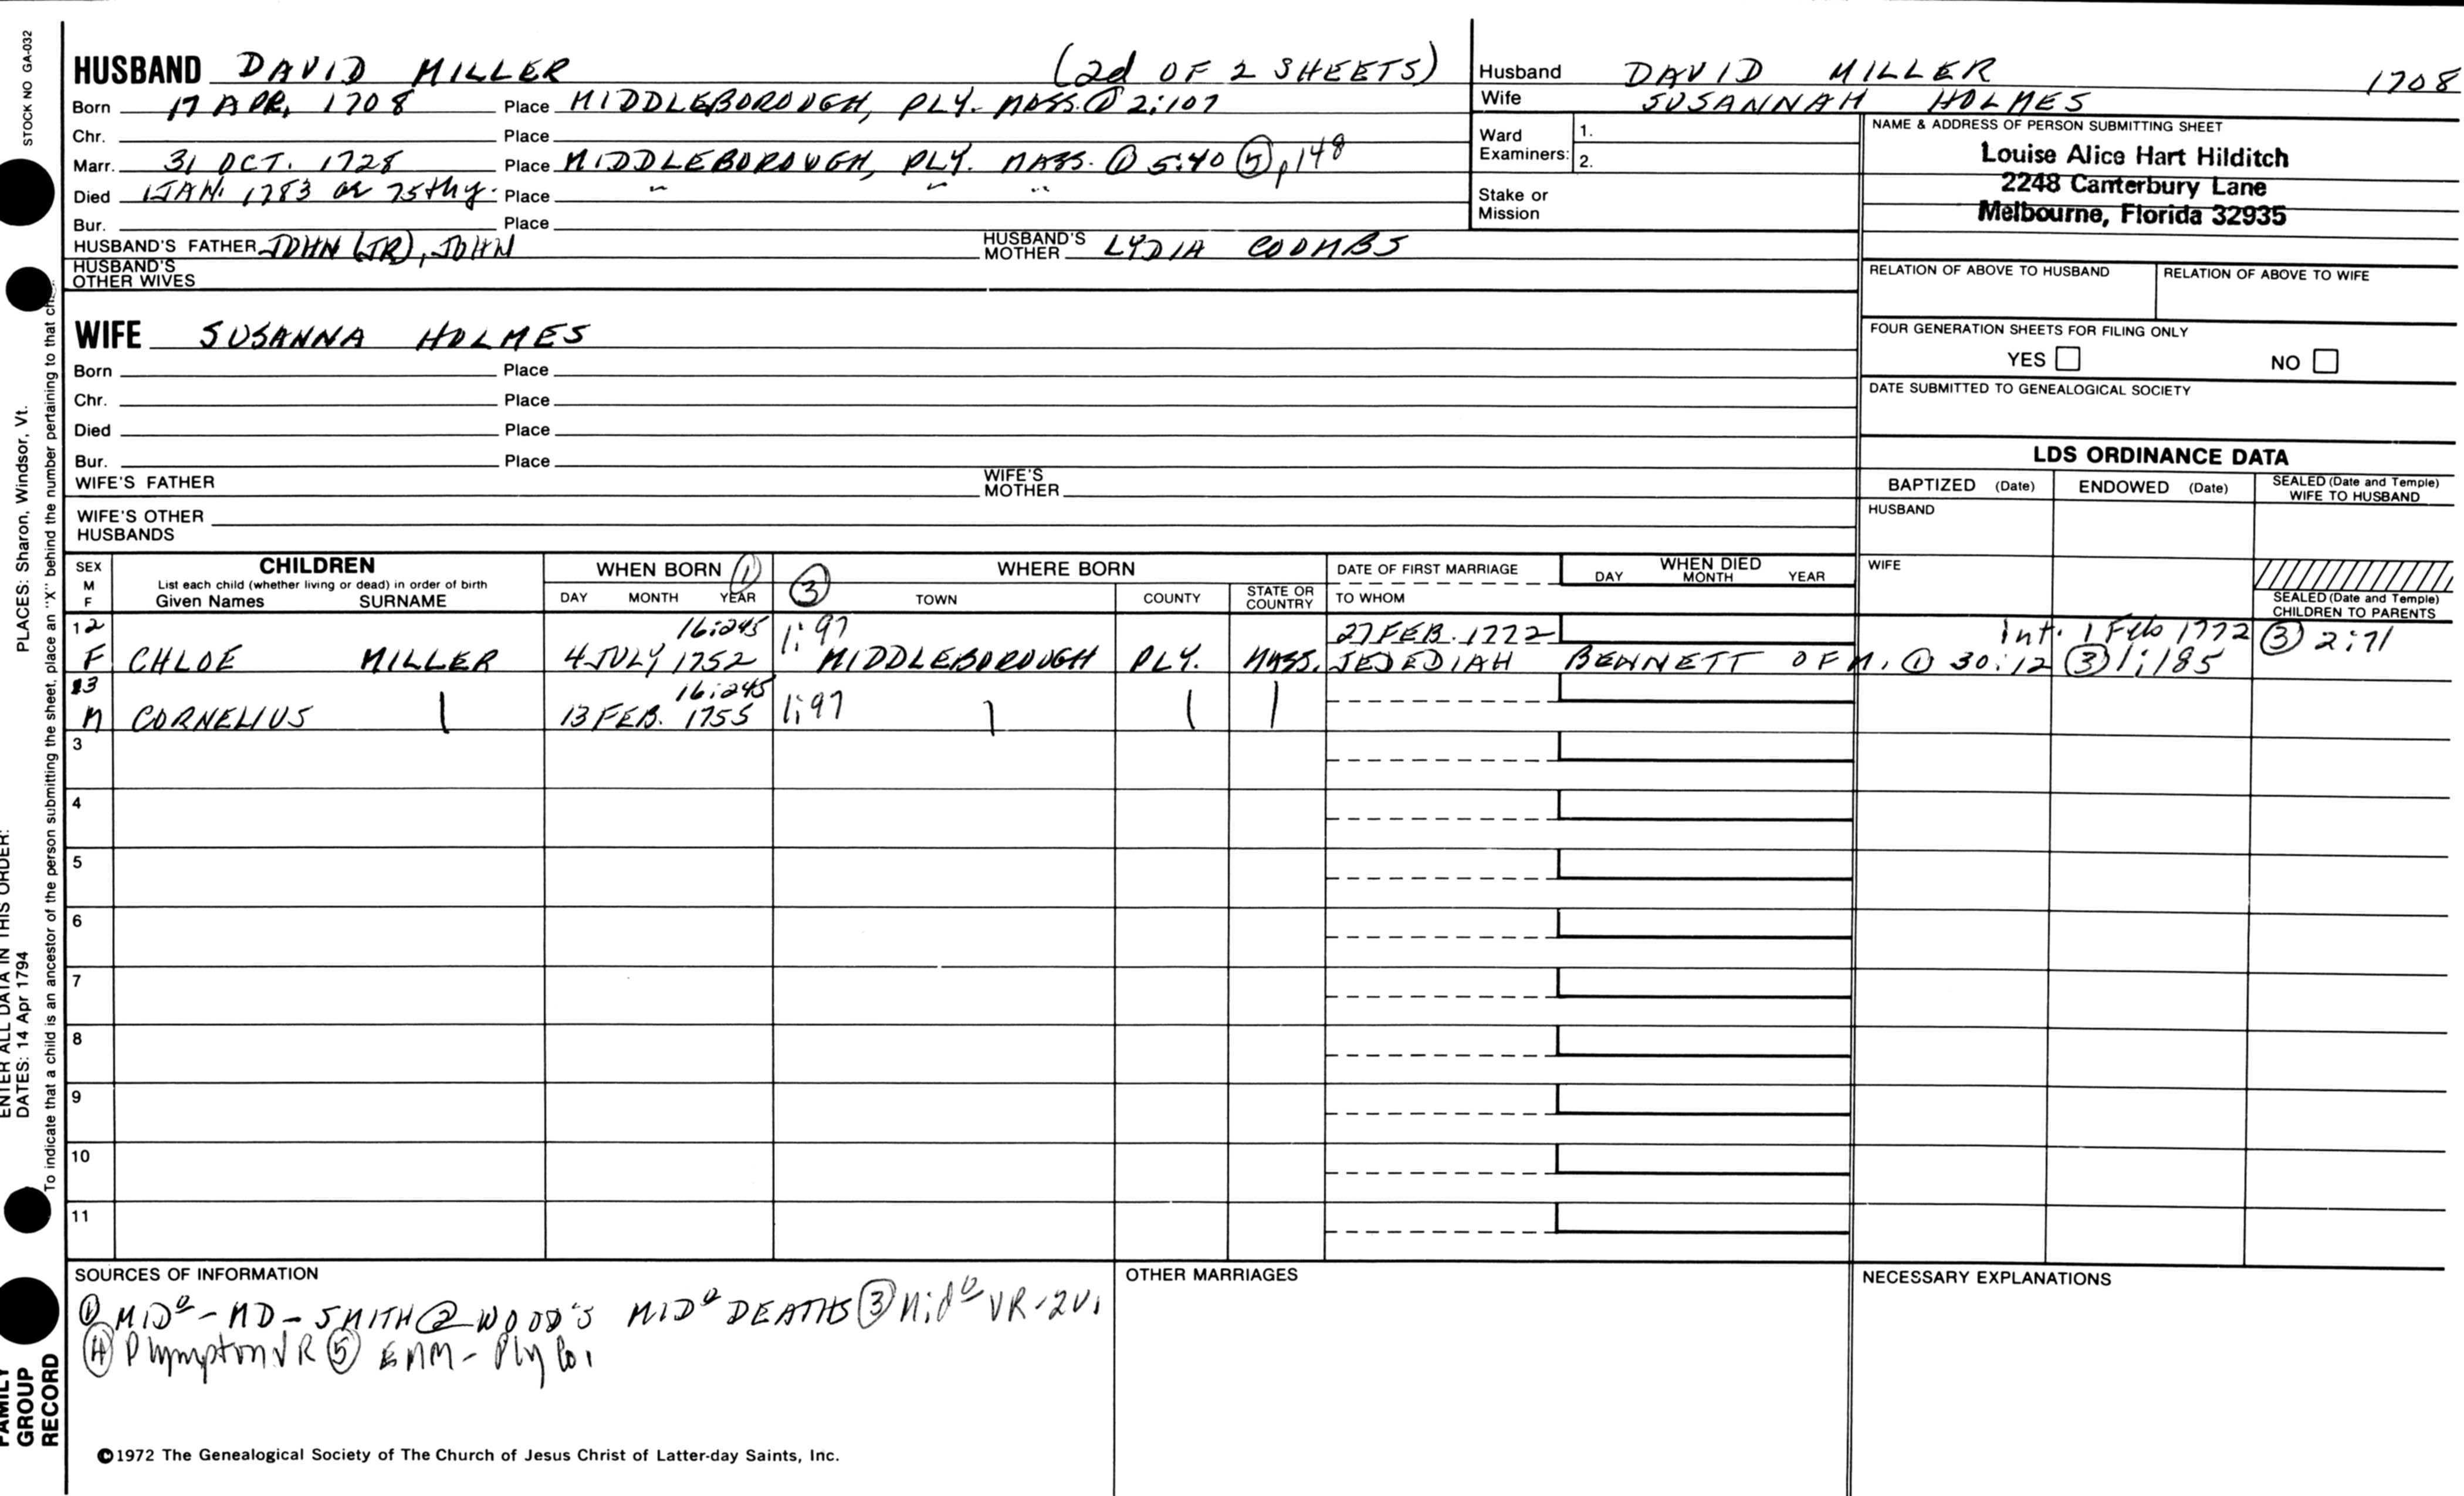 HUSBAND DAVID MILLER (2d OF 2 SHEETS)
Born 17 APR. 1708 Place MIDDLEBOROUGH, PLY. MASS. ① 2:107
Chr. Place
Marr. 31 OCT. 1728 Place MIDDLEBOROUGH, PLY. MASS. ① 5:40 ⑤ p148
Died 1 JAN. 1783 ae 75thy. Place " " "
Bur. Place
HUSBAND'S FATHER JOHN (JR), JOHN HUSBAND'S MOTHER LYDIA COOMBS
HUSBAND'S OTHER WIVES
WIFE SUSANNA HOLMES
Born Place
Chr. Place
Died Place
Bur. Place
WIFE'S FATHER WIFE'S MOTHER
WIFE'S OTHER HUSBANDS
Husband DAVID MILLER 1708
Wife SUSANNAH HOLMES
Ward Examiners: 1.
2.
Stake or Mission
NAME & ADDRESS OF PERSON SUBMITTING SHEET
Louise Alice Hart Hilditch
2248 Canterbury Lane
Melbourne, Florida 32935
RELATION OF ABOVE TO HUSBAND RELATION OF ABOVE TO WIFE
FOUR GENERATION SHEETS FOR FILING ONLY
YES NO
DATE SUBMITTED TO GENEALOGICAL SOCIETY
LDS ORDINANCE DATA
BAPTIZED (Date) ENDOWED (Date) SEALED (Date and Temple) WIFE TO HUSBAND
HUSBAND
WIFE
SEALED (Date and Temple) CHILDREN TO PARENTS
SEX M F CHILDREN WHEN BORN ① ③ WHERE BORN DATE OF FIRST MARRIAGE WHEN DIED
List each child (whether living or dead) in order of birth
Given Names SURNAME DAY MONTH YEAR TOWN COUNTY STATE OR COUNTRY TO WHOM DAY MONTH YEAR
12 16:245 1:97 27 FEB. 1772 Int. 1 Feb 1772 ③ 2:71
F CHLOE MILLER 4 JULY 1752 MIDDLEBOROUGH PLY. MASS. JEDEDIAH BENNETT OF M. ① 30:12 ③ 1:185
13 16:245
M CORNELIUS 13 FEB. 1755 1:97
3
4
5
6
7
8
9
10
11
SOURCES OF INFORMATION
① MIDº - MD - SMITH ② WOOD'S MIDº DEATHS ③ Midº VR - 2V.
④ Plympton VR ⑤ EMM - Ply Co.
OTHER MARRIAGES
NECESSARY EXPLANATIONS
©1972 The Genealogical Society of The Church of Jesus Christ of Latter-day Saints, Inc.
STOCK NO GA-032
PLACES: Sharon, Windsor, Vt.
ENTER ALL DATA IN THIS ORDER:
DATES: 14 Apr 1794
To indicate that a child is an ancestor of the person submitting the sheet, place an "X" behind the number pertaining to that
FAMILY GROUP RECORD